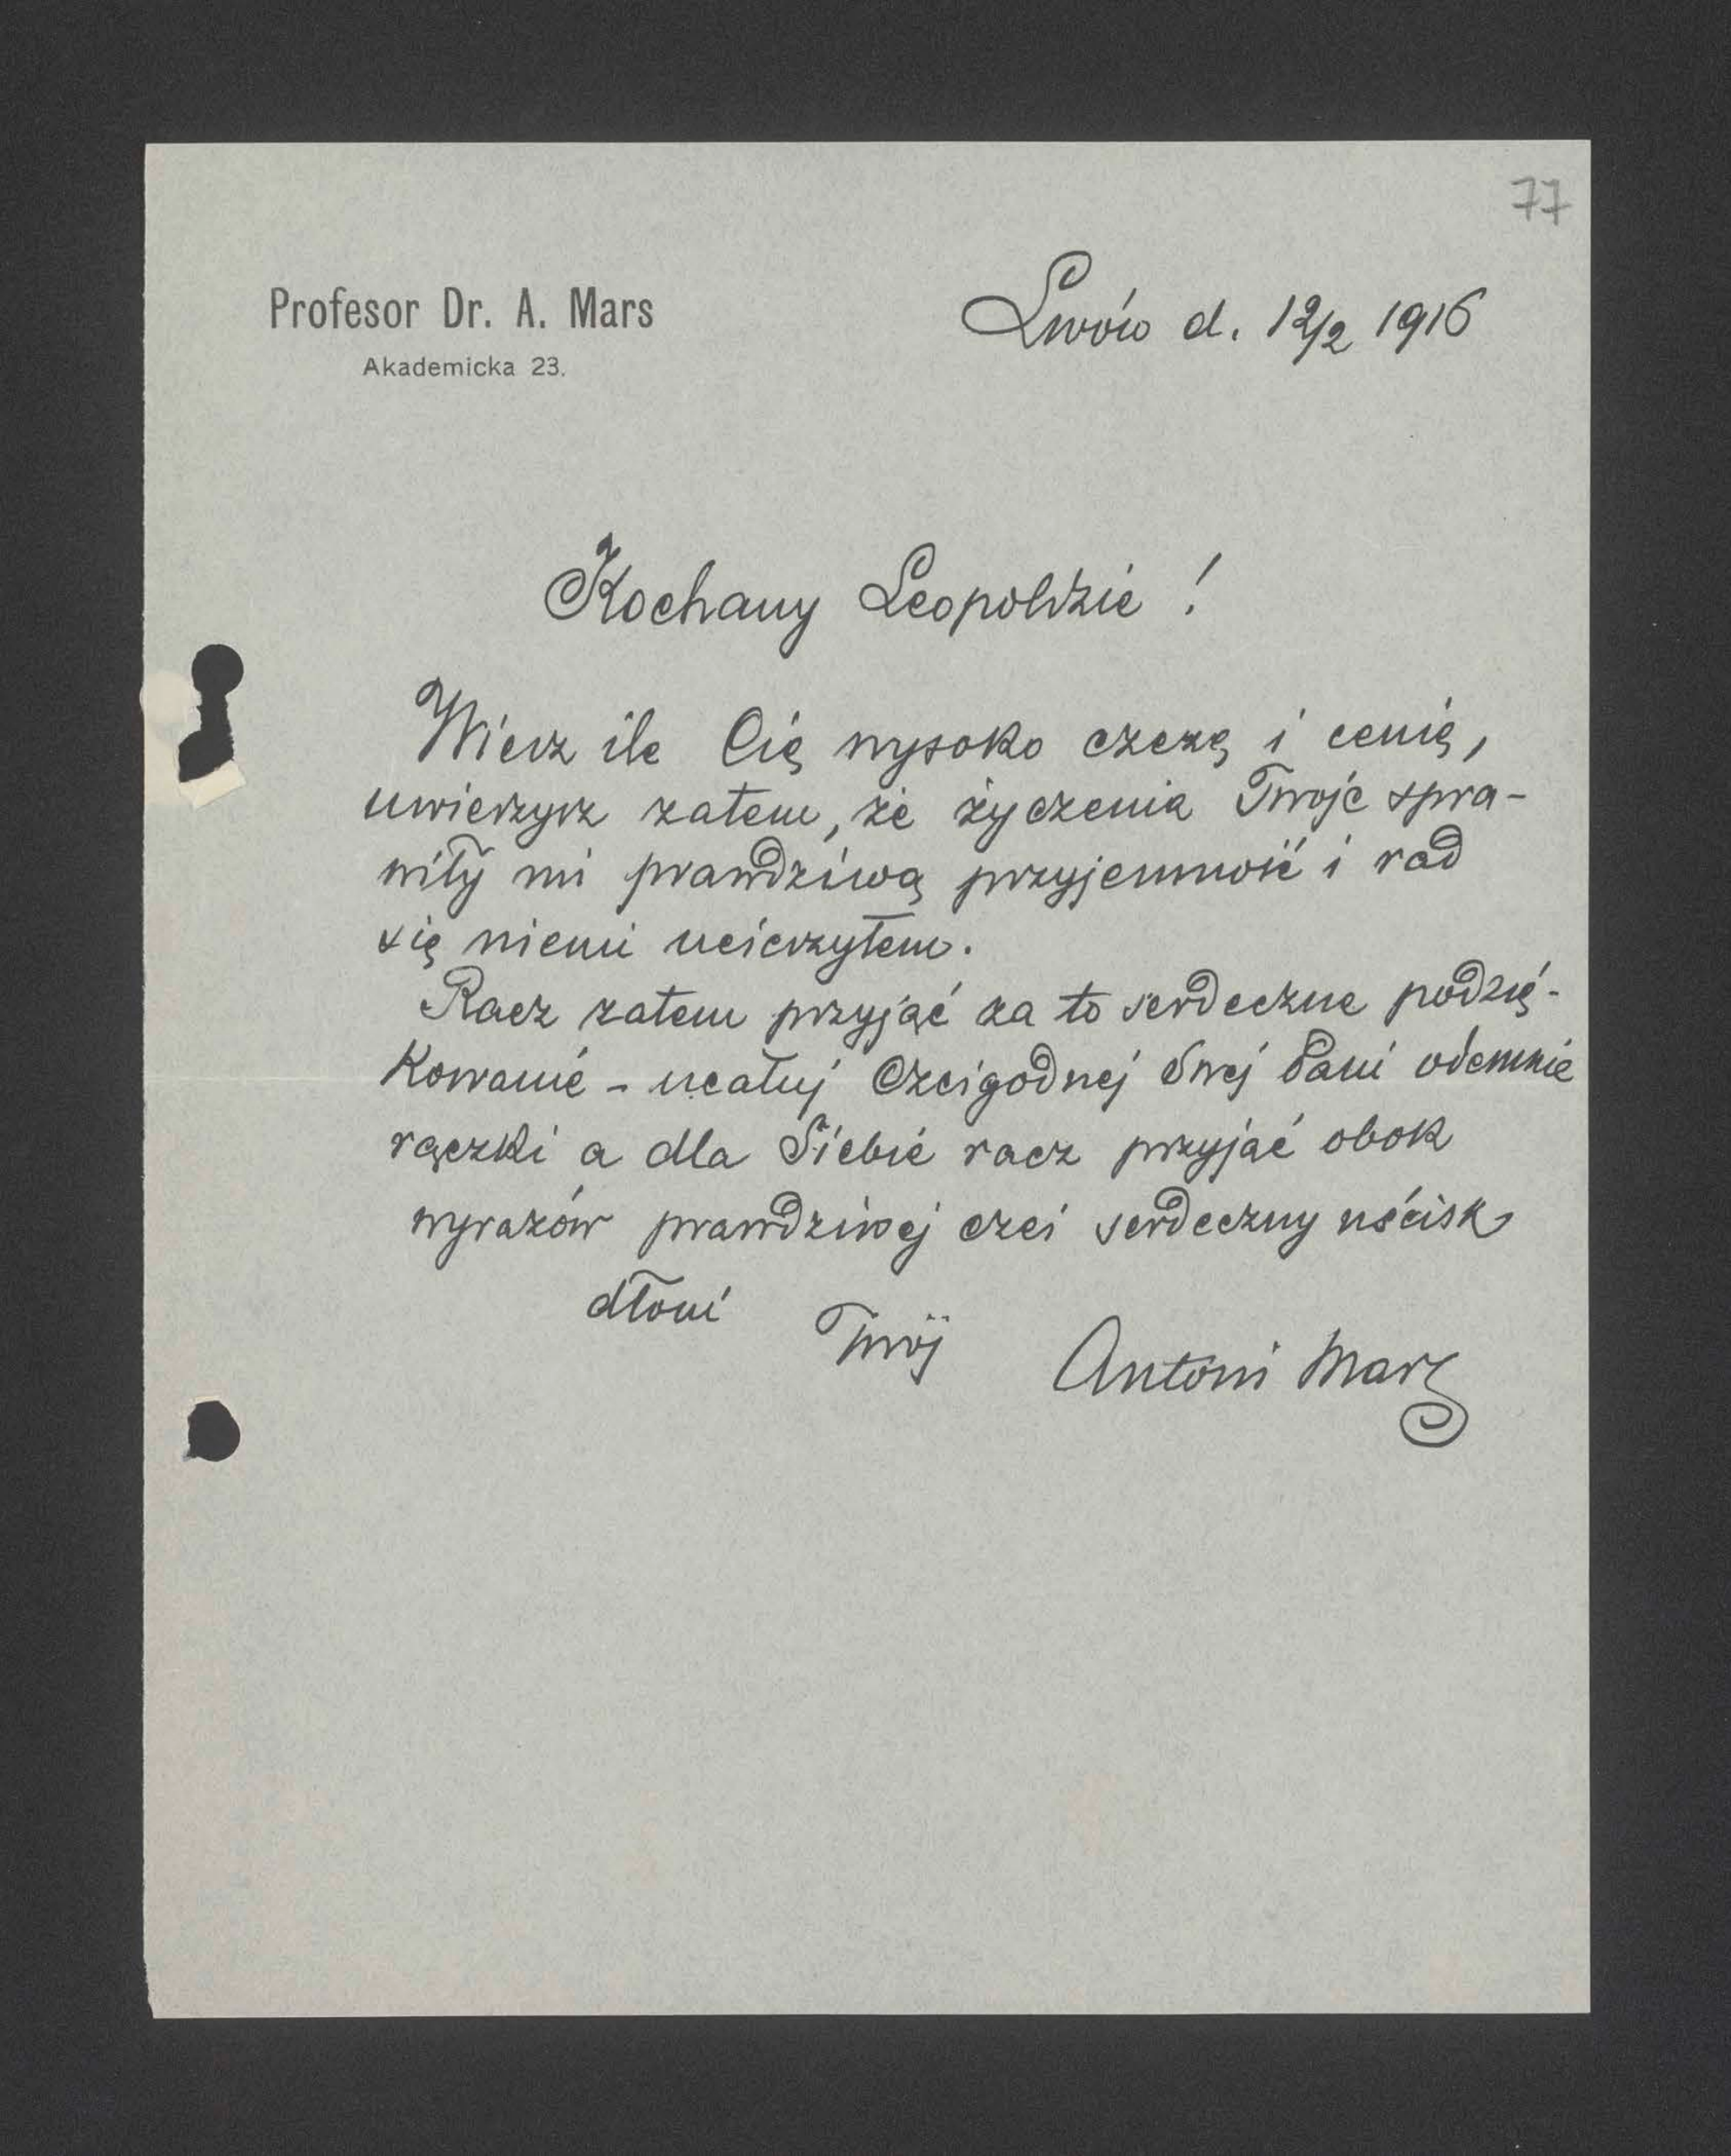 77
Profesor Dr. A. Mars
Akademicka 23.
Lwów d. 12/2 1916
Kochany Leopoldzie !
Wiesz ile Cię wysoko czczę i cenię,
uwierzysz zatem, że życzenia Twoje spra-
wiły mi prawdziwą przyjemność i rad
się niemi ucieszyłem.
Racz zatem przyjąć za to serdeczne podzię-
kowanie - ucałuj Czcigodnej Swej Pani odemnie
rączki a dla Siebie racz przyjąć obok
wyrazów prawdziwej czci serdeczny uścisk
dłoni
Twój
Antoni Mars